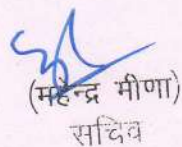 (महेन्द्र मीणा)
सचिव